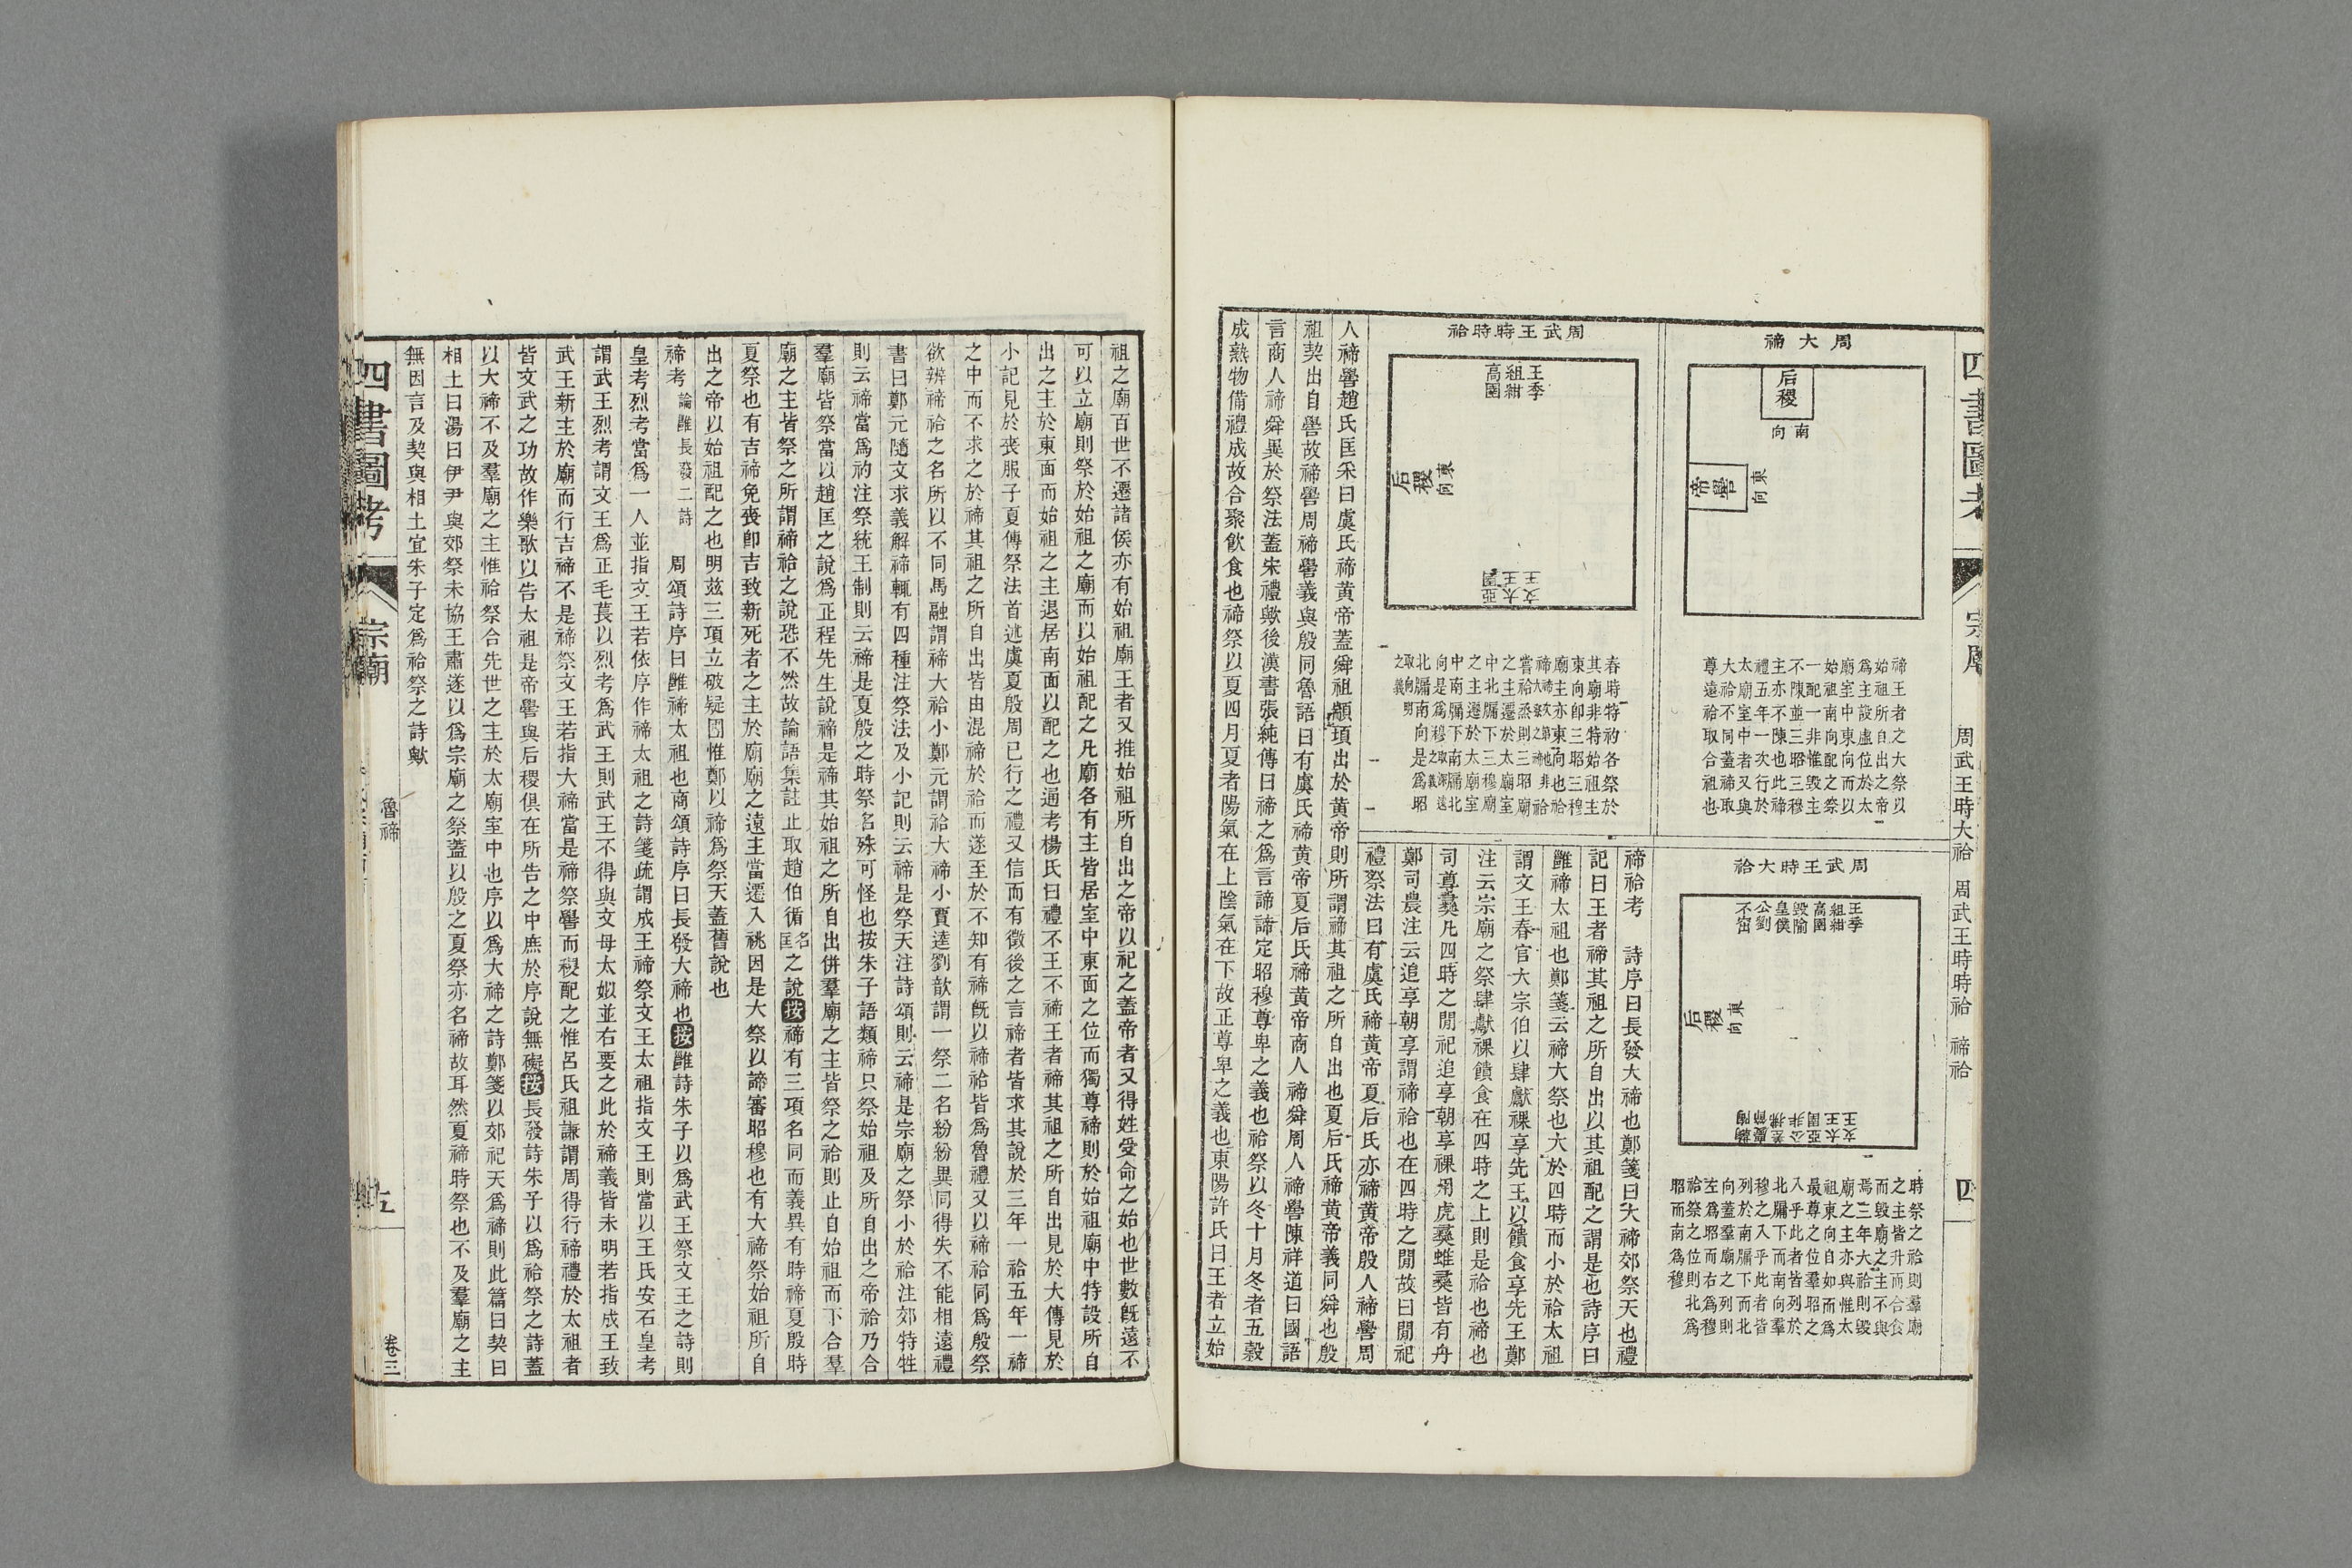 四書圖考 宗廟 周武王時大祫 周武王時時祫 禘祫 四
周大禘
后稷
南向
帝嚳
東向
禘王者之大祭以
始祖所自出之帝
為主設虛位於太
廟室中東向而以
始祖南向配之祭
一配一非惟毀主
不陳並三昭三穆
主亦不陳也此禘
禮五年一次行於
太廟室中者又與
大祫不同蓋禘取
尊遠祫取合祖也
周武王時大祫
王季
組紺
高圉
毀隃
皇僕
公劉
不窋
后稷
東向
文王
太王
亞圉
公非
差弗
慶節
鞠陶
時祭之祫則羣廟
之主皆升而合食
而毀廟之主不與
焉三年大祫則毀
廟之主亦與惟太
祖東向自如而為
最尊之位羣昭之
入乎此者皆列於
北牖下而南向羣
穆之入乎此者皆
列於南牖下而北
向蓋羣廟之列則
左為昭而右為穆
祫祭之位則北為
昭而南為穆
周武王時時祫
王季
組紺
高圉
后稷
東向
文王
太王
亞圉
春時特礿各祭於
其廟非特始祖主
東向即三昭三穆
廟主亦東向也祫
禘
嘗祫烝則三昭廟
之主遷於太廟室
中北牖下三穆廟
之主遷於太廟室
中南牖下南牖北
向是為穆取深遠之義
北牖南向是為昭
取向明之義
禘祫考 詩序曰長發大禘也鄭箋曰大禘郊祭天也禮
記曰王者禘其祖之所自出以其祖配之謂是也詩序曰
雝禘太祖也鄭箋云禘大祭也大於四時而小於祫太祖
謂文王春官大宗伯以肆獻祼享先王以饋食享先王鄭
注云宗廟之祭肆獻祼饋食在四時之上則是祫也禘也
司尊彝凡四時之閒祀追享朝享祼用虎彝蜼彝皆有舟
鄭司農注云追享朝享謂禘祫也在四時之閒故曰閒祀
禮祭法曰有虞氏禘黄帝夏后氏亦禘黄帝殷人禘嚳周
人禘嚳趙氏匡釆曰虞氏禘黄帝蓋舜祖顓頊出於黄帝則所謂禘其祖之所自出也夏后氏禘黄帝義同舜也殷
祖契出自嚳故禘嚳周禘嚳義與殷同魯語曰有虞氏禘黄帝夏后氏禘黄帝商人禘舜周人禘嚳陳祥道曰國語
言商人禘舜異於祭法蓋宋禮歟後漢書張純傳曰禘之爲言諦諦定昭穆尊卑之義也祫祭以冬十月冬者五穀
成熟物備禮成故合聚飲食也禘祭以夏四月夏者陽氣在上陰氣在下故正尊卑之義也東陽許氏曰王者立始
祖之廟百世不遷諸侯亦有始祖廟王者又推始祖所自出之帝以祀之蓋帝者又得姓受命之始也世數旣遠不
可以立廟則祭於始祖之廟而以始祖配之凡廟各有主皆居室中東面之位而獨尊禘則於始祖廟中特設所自
出之主於東面而始祖之主退居南面以配之也通考楊氏曰禮不王不禘王者禘其祖之所自出見於大傳見於
小記見於喪服子夏傳祭法首述虞夏殷周已行之禮又信而有徵後之言禘者皆求其說於三年一祫五年一禘
之中而不求之於禘其祖之所自出皆由混禘於祫而遂至於不知有禘旣以禘祫皆爲魯禮又以禘祫同爲殷祭
欲辨禘祫之名所以不同馬融謂禘大祫小鄭元謂祫大禘小賈逵劉歆謂一祭二名紛紛異同得失不能相遠禮
書曰鄭元隨文求義解禘輒有四種注祭法及小記則云禘是祭天注詩頌則云禘是宗廟之祭小於祫注郊特牲
則云禘當爲礿注祭統王制則云禘是夏殷之時祭名殊可怪也按朱子語類禘只祭始祖及所自出之帝祫乃合
羣廟皆祭當以趙匡之說爲正程先生說禘是禘其始祖之所自出併羣廟之主皆祭之祫則止自始祖而下合羣
廟之主皆祭之所謂禘祫之說恐不然故論語集註止取趙伯循名匡之說按禘有三項名同而義異有時禘夏殷時
夏祭也有吉禘免喪卽吉致新死者之主於廟廟之遠主當遷入祧因是大祭以諦審昭穆也有大禘祭始祖所自
出之帝以始祖配之也明茲三項立破疑團惟鄭以禘爲祭天蓋舊說也
禘考 論雝長發二詩 周頌詩序曰雝禘太祖也商頌詩序曰長發大禘也按雝詩朱子以爲武王祭文王之詩則
皇考烈考當爲一人並指文王若依序作禘太祖之詩箋疏謂成王禘祭文王太祖指文王則當以王氏安石皇考
謂武王烈考謂文王爲正毛萇以烈考爲武王則武王不得與文母太姒並右要之此於禘義皆未明若指成王致
武王新主於廟而行吉禘不是禘祭文王若指大禘當是禘祭嚳而稷配之惟呂氏祖謙謂周得行禘禮於太祖者
皆文武之功故作樂歌以告太祖是帝嚳與后稷俱在所告之中庶於序說無礙按長發詩朱子以爲祫祭之詩蓋
以大禘不及羣廟之主惟祫祭合先世之主於太廟室中也序以爲大禘之詩鄭箋以郊祀天爲禘則此篇曰契曰
相土曰湯曰伊尹與郊祭未協王肅遂以爲宗廟之祭蓋以殷之夏祭亦名禘故耳然夏禘時祭也不及羣廟之主
無因言及契與相土宜朱子定爲祫祭之詩歟
四書圖考 宗廟 魯禘 五 卷三